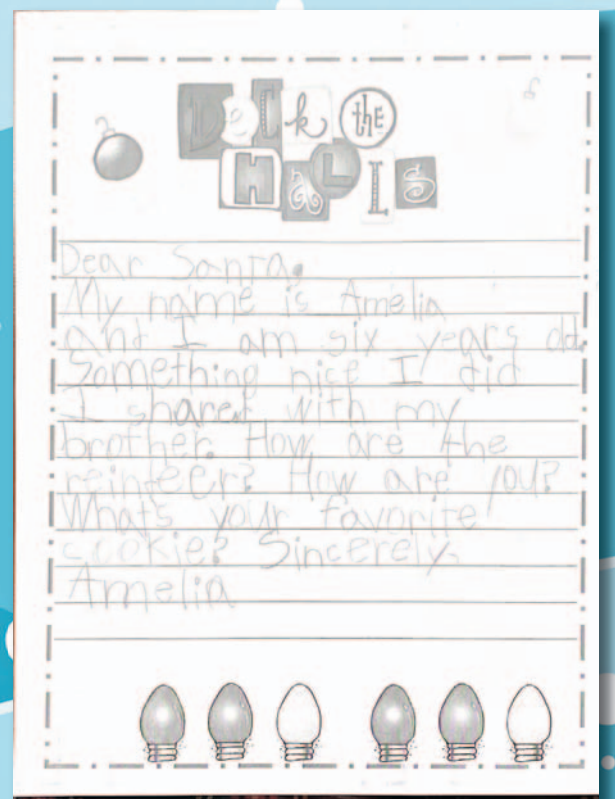 Deck the
HaLLS
Dear Santa,
My name is Amelia
ant I am six years old.
Something nice I did
I shared with my
brother. How are the
reinteer? How are you?
What's your favorite
cookie? Sincerely,
Amelia